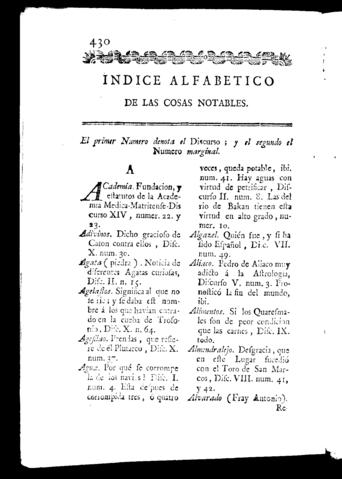 430
INDICE ALFABETICO
DE LAS COSAS NOTABLES.
El primer Numero denota el Discurso ; y el segundo el
Numero marginal.
A
ACademia. Fundacion, y
estatutos de la Acade-
mia Medica-Matritense-Dis
curso XIV, numer. 22. y
23.
Adivinos. Dicho gracioso de
Caton contra ellos, Disc.
X. num. 30.
Agata ( piedra ). Noticia de
diferentes Agatas curiosas,
Disc. II. n. 15.
Agelastos. Significa al que no
se rie; y se daba est nom-
bre á los que havian entra-
do en la cueba de Trofo-
nio, Disc. X. n. 64.
Agesilao. Prendas, que refie-
re de él Plutarco, Disc. X.
num. 37.
Agua. Por qué se corrompe
la de los navios? Disc. I.
num. 4. Esta despues de
corrompida tres, ó quatro
veces, queda potable, ibi.
num. 41. Hay aguas con
virtud de petrificar, Dis-
curso II. num. 8. Las del
rio de Bakan tienen esta
virtud en alto grado, nu-
mer. 10.
Algazel. Quién fue, y si ha
sido Español, Disc. VII.
num. 49.
Aliaco. Pedro de Aliaco muy
adicto á la Astrologia,
Discurso V. num. 3. Pro-
nosticó la fin del mundo,
ibi.
Alimentos. Si los Quaresma-
les son de peor condicion
que las carnes, Disc. IX.
todo.
Almendralejo. Desgracia, que
en este Lugar sucedió
con el Toro de San Mar-
cos, Disc. VIII. num. 41,
y 42.
Alvarado (Fray Antonio).
Re